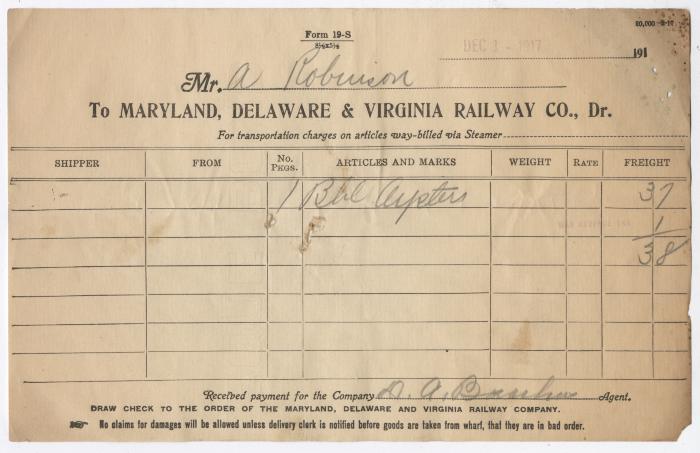 Form 19-S
8½x5½
20,000-2-17
DEC 1 - 1917
191
Mr. A Robinson
To MARYLAND, DELAWARE & VIRGINIA RAILWAY CO., Dr.
For transportation charges on articles way-billed via Steamer
SHIPPER FROM No. Pkgs. ARTICLES AND MARKS WEIGHT RATE FREIGHT
1 Bbl Oysters 37
1
38
Received payment for the Company D. A. Agent.
DRAW CHECK TO THE ORDER OF THE MARYLAND, DELAWARE AND VIRGINIA RAILWAY COMPANY.
No claims for damages will be allowed unless delivery clerk is notified before goods are taken from wharf, that they are in bad order.